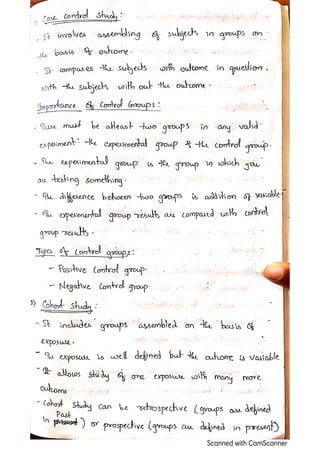 Case Control Study :
- It involves assembling of subjects in groups on
the basis of outcome.
- It compares the subjects with outcome in question,
with the subjects with out the outcome.
Importance of Control Groups :
- There must be atleast two groups in any valid
experiment : the experimental group & the control group.
- The experimental group is the group in which you
are testing something.
- The difference between two groups is addition of variable.
- The experimental group results are compared with control
group results.
Types of Control groups :
- Positive Control group.
- Negative Control group.
Cohort Study :
- It includes groups assembled on the basis of
exposure.
- The exposure is well defined but the outcome is variable
- It allows study of one exposure with many more
outcome
- Cohort Study can be retrospective (groups are defined
Past
in ) or prospective (groups are defined in present)
Scanned with CamScanner